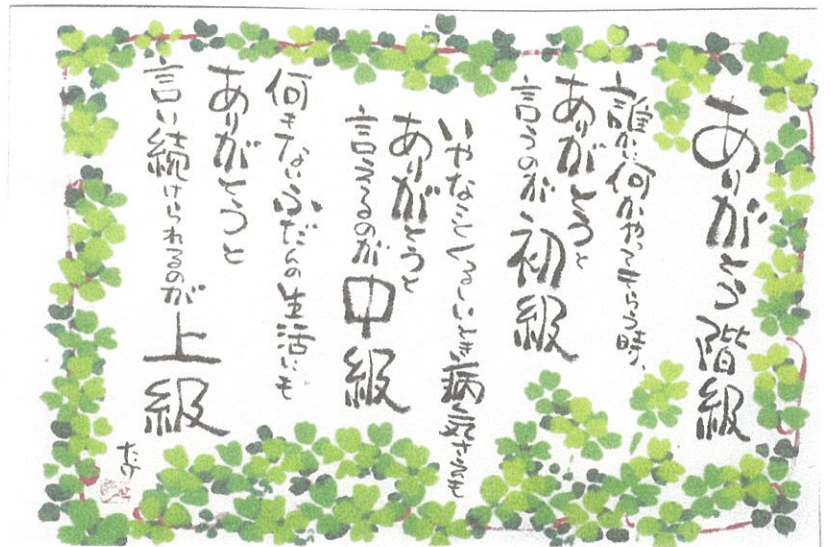 ありがとう階級
誰かに何かやってもらう時、
ありがとうと
言うのが初級
いやなことくるしいとき病気さえも
ありがとうと
言えるのが中級
何きないふだんの生活にも
ありがとうと
言い続けられるのが上級